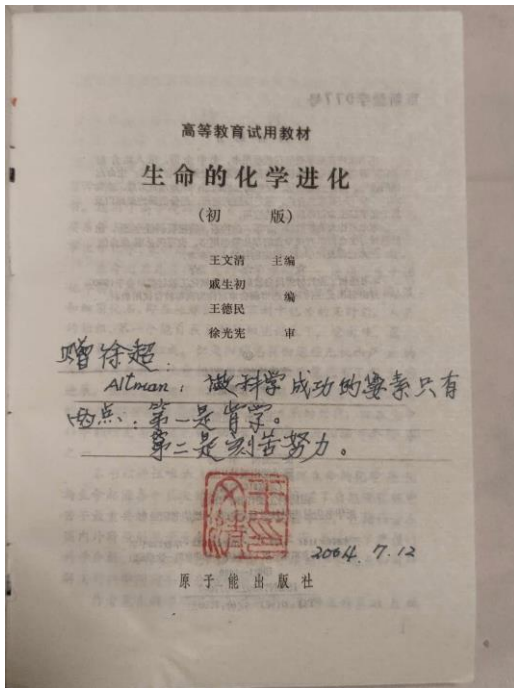 高等教育试用教材
生命的化学进化
(初 版)
王文清 主编
戚生初
编
王德民
徐光宪 审
赠徐超:
Altman: 做科学成功的要素只有
两点: 第一是肯学。
第二是刻苦努力。
2004.7.12
原子能出版社